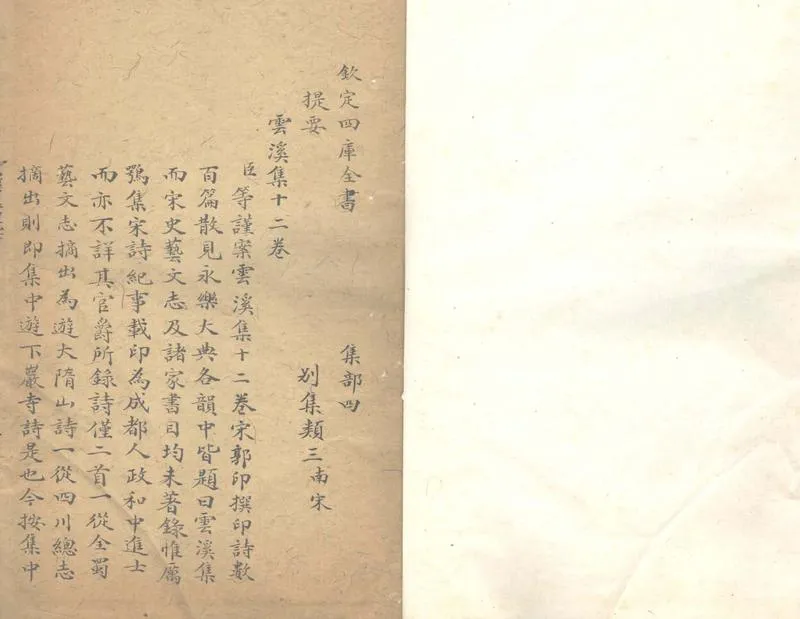 欽定四庫全書 集部四
提要 別集類三南宋
雲溪集十二卷
臣等謹案雲溪集十二卷宋郭印撰印詩數
百篇散見永樂大典各韻中皆題曰雲溪集
而宋史藝文志及諸家書目均未著錄惟厲
鶚集宋詩紀事載印為成都人政和中進士
而亦不詳其官爵所錄詩僅二首一從全蜀
藝文志摘出為遊大隋山詩一從四川總志
摘出則即集中遊下巖寺詩是也今按集中